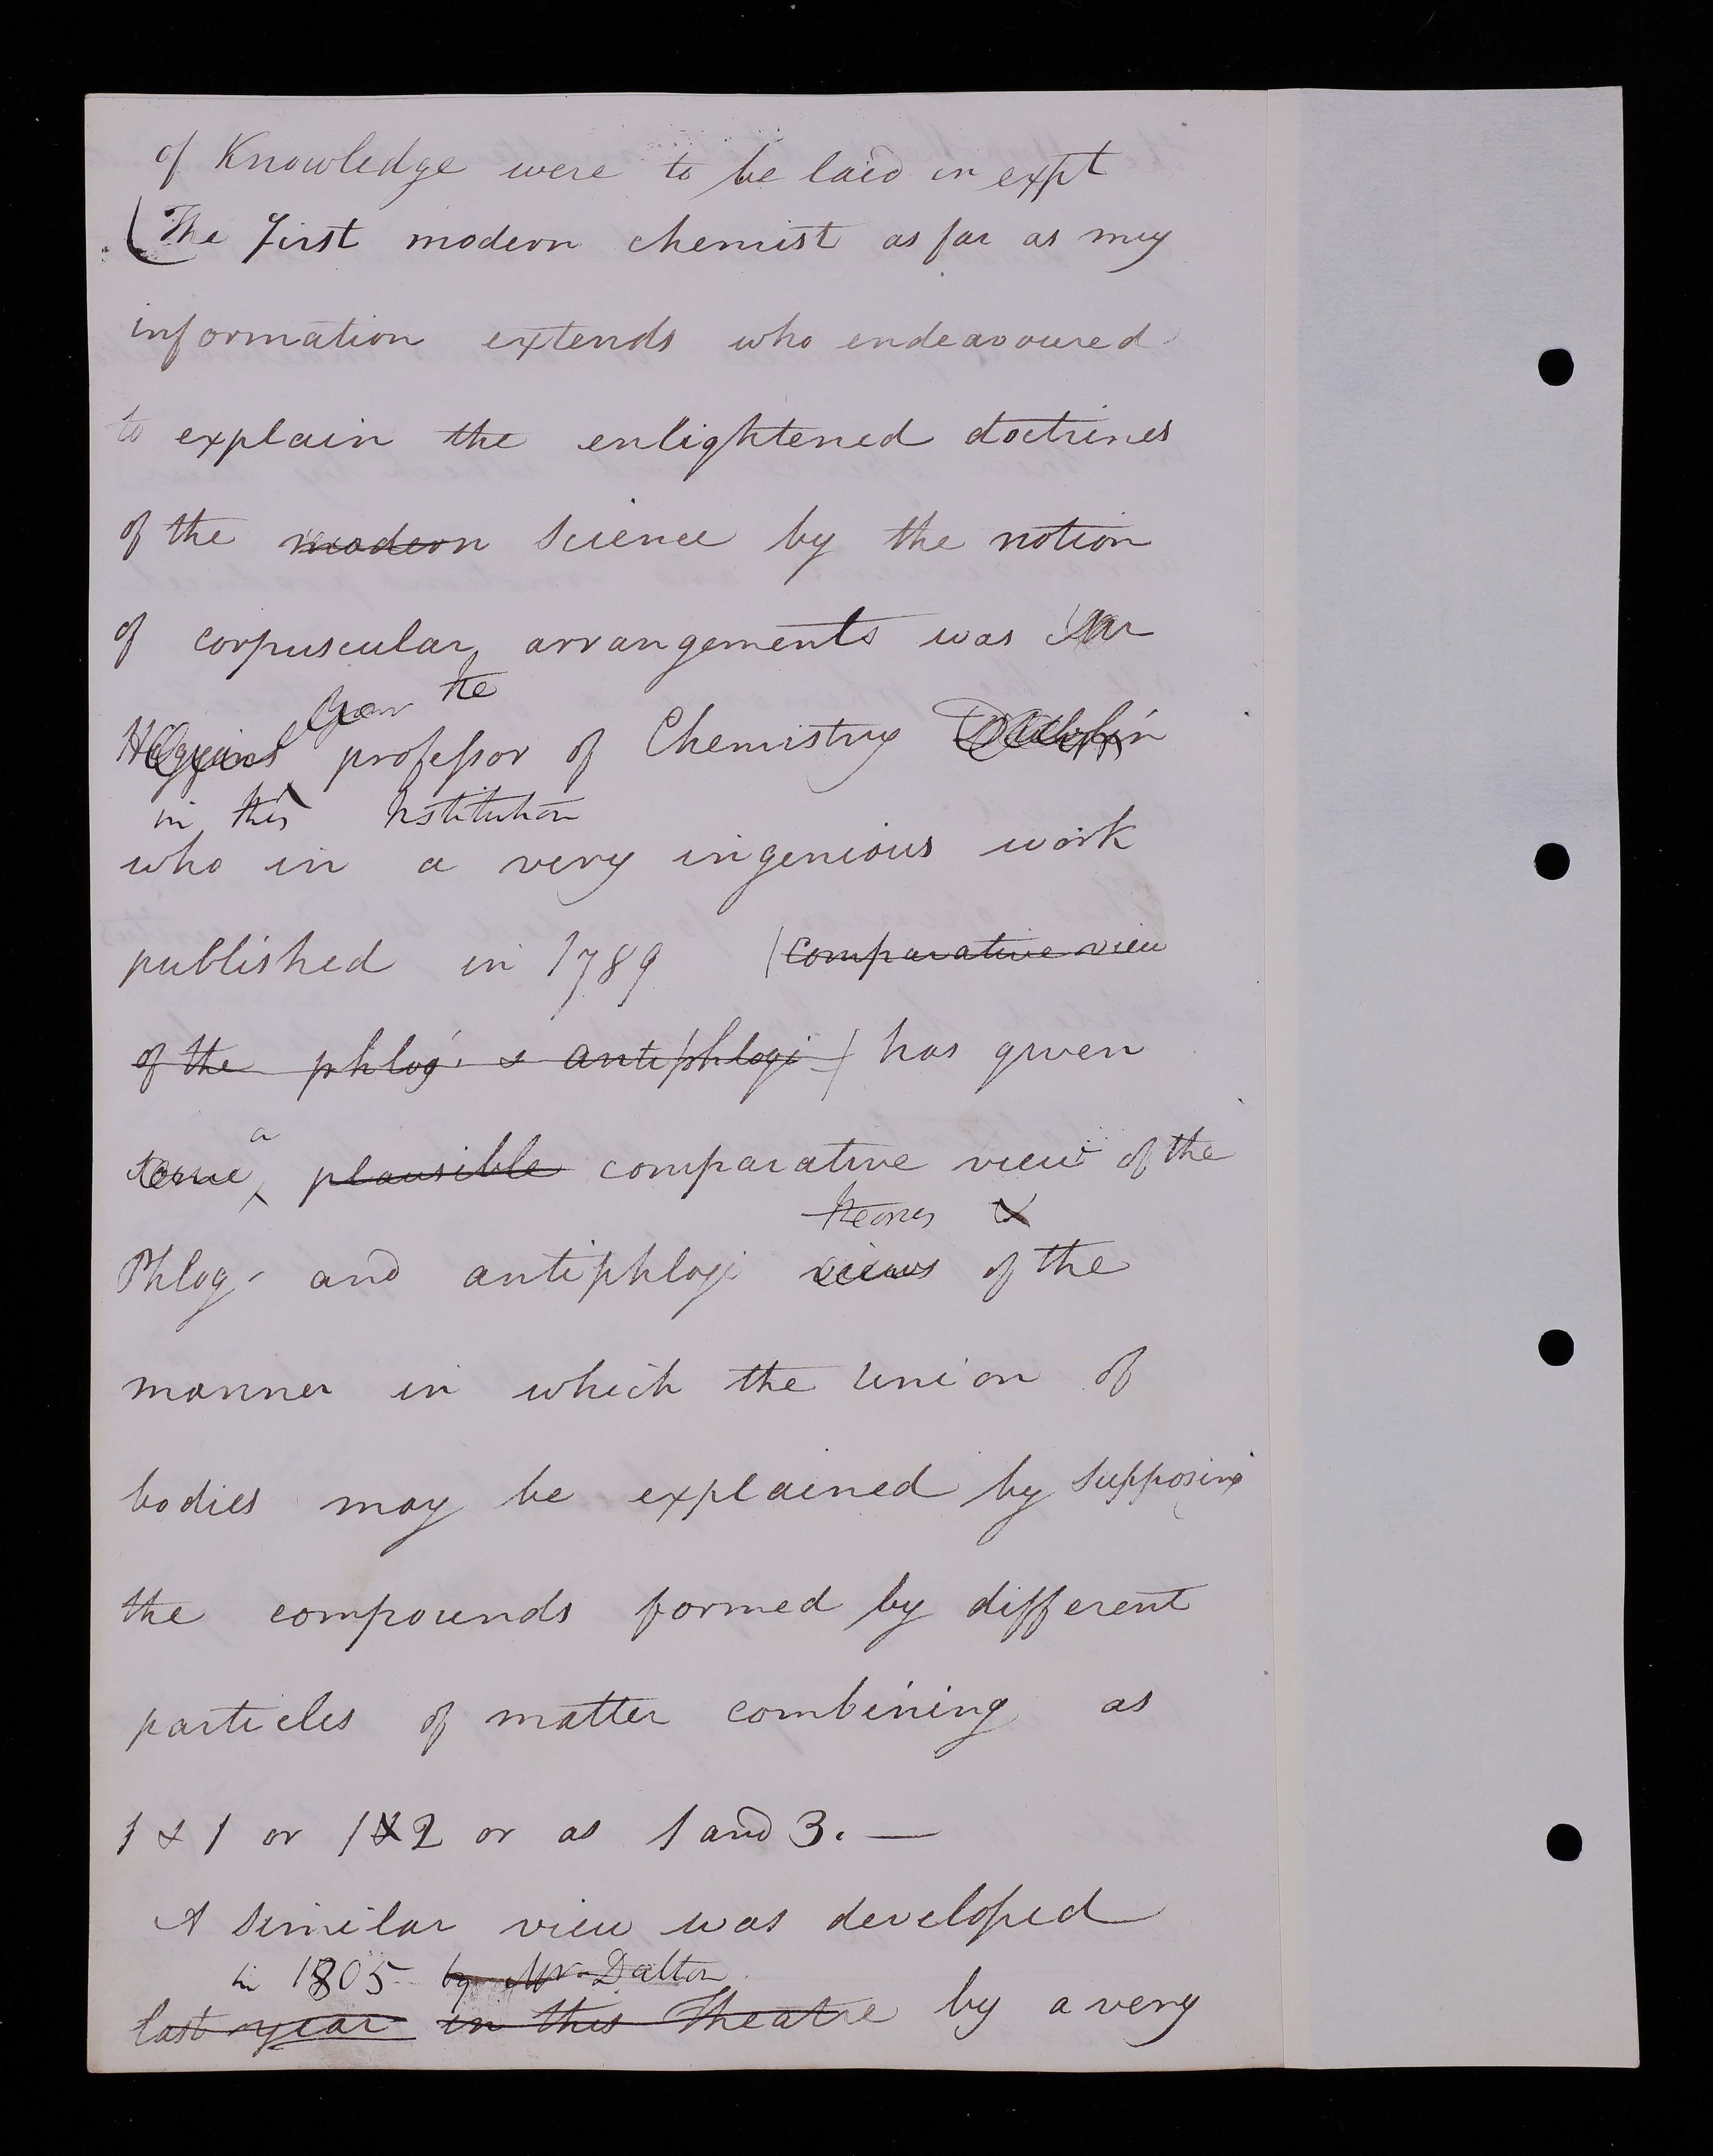 of Knowledge were to be laid in expt
(The first modern chemist as far as my
information extends who endeavoured
to explain the enlightened doctrines
of the modern science by the notion
of corpuscular arrangements was
the
Higgins professor of Chemistry Dublin
in this Institution
who in a very ingenious work
published in 1789 (comparative view
of the phlog. & antiphlogi-) has given
a
some plausible comparative view of the
theories &
Phlog- and antiphlogi views of the
manner in which the union of
bodies may be explained by supposing
the compounds formed by different
particles of matter combining as
1 & 1 or 1 & 2 or as 1 and 3. —
A similar view was developed
in 1805 by Mr. Dalton
last year in this Theatre by a very